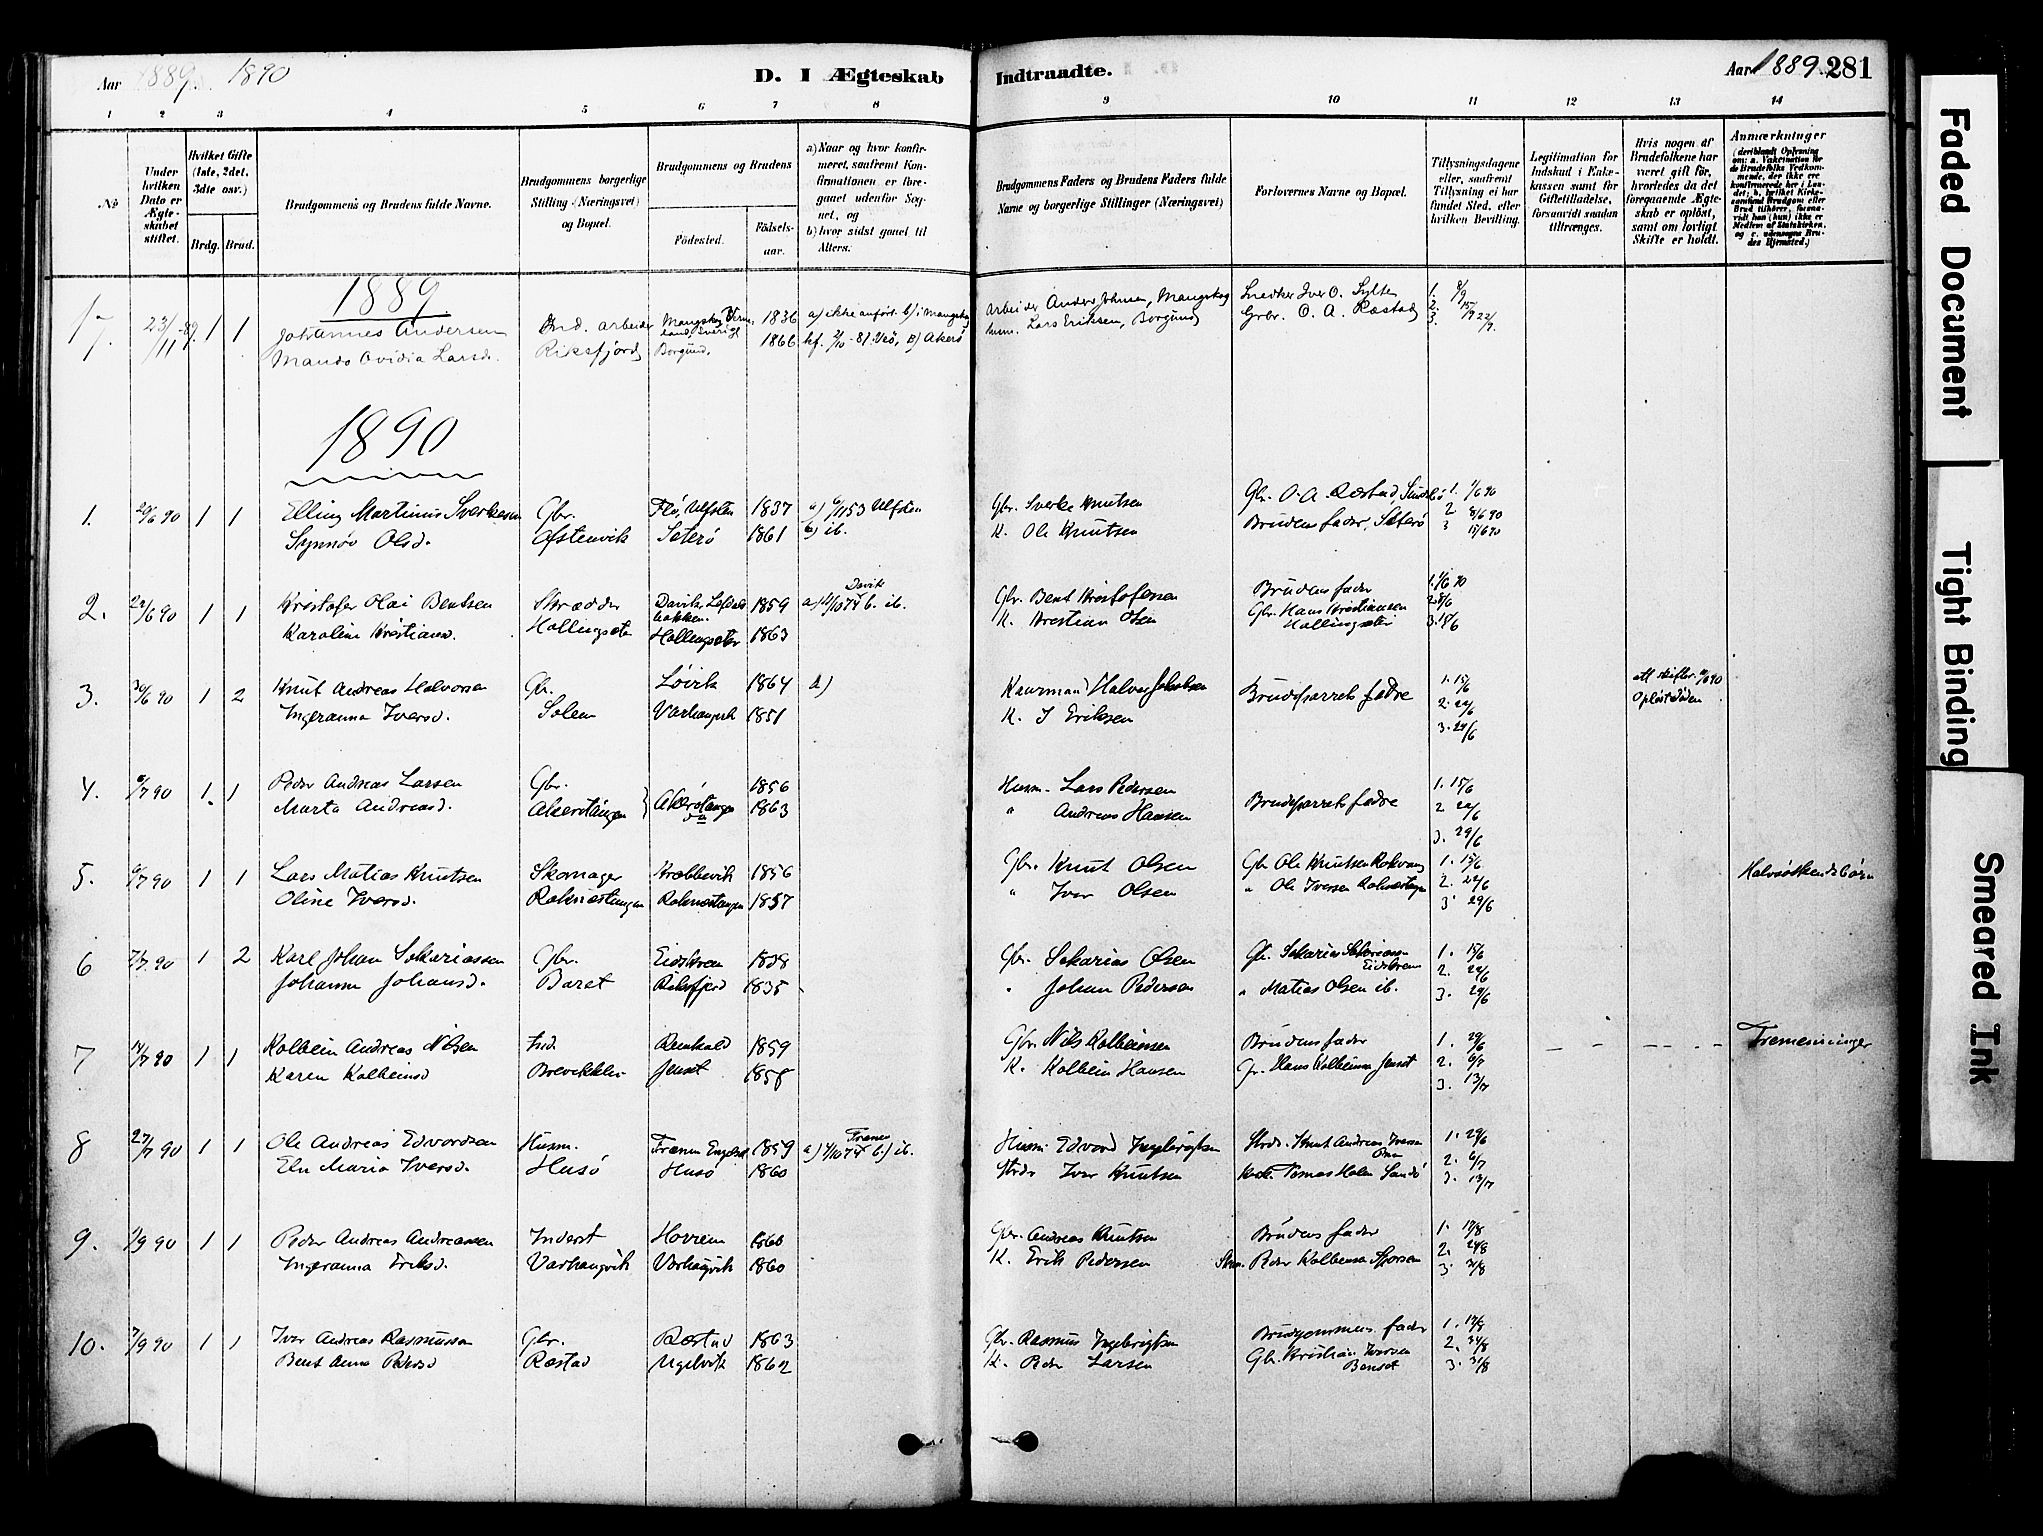 Aar 1889. 1890
D. I Ægteskab
Indtraadte.
Aar 1889. 281
1 2 3 4 5 6 7 8 9 10 11 12 13 14
No
Under hvilken Dato er Ægteskabet stiftet.
Hvilket Gifte (1ste, 2det, 3die osv.)
Brdg. Brud.
Brudgommens og Brudens fulde Navne.
Brudgommens borgerlige Stilling (Næringsvei) og Bopæl.
Brudgommens og Brudens
Fødested.
Fødselsaar.
a) Naar og hvor konfirmeret, saafremt Konfirmationen er foregaaet udenfor Sognet, og
b) hvor sidst gaaet til Alters.
Brudgommens Faders og Brudens Faders fulde Navne og borgerlige Stillinger (Næringsvei)
Forlovernes Navne og Bopæl.
Tillysningsdagene eller, saafremt Tillysning ei har fundet Sted, efter hvilken Bevilling.
Legitimation for Indskud i Enkekassen samt for Giftetilladelse, forsaavidt saadan tiltrænges.
Hvis nogen af Brudefolkene har været gift før, hvorledes da det foregaaende Ægteskab er opløst, samt om lovligt Skifte er holdt.
Anmærkninger
1889
23/11-89 1 1 Johannes Andersen Ind. arbeider 1836 a) ikke anført b) i Mangskog Arbeider Anders Johnsen, Mangskog Snedker Iver O. Sylte 1. 8/9
Lars Eriksen, Borgund Grbr. O. A. Ræstad 2. 15/9
Ovidia Larsd. Riksfjord Borgund. 1866 3. 22/9.
1890
1. 20/6 90 1 1 Elling Martinus Sverkesen Gbr. Flø, Ulfsten 1837 Ulfsten Gbr. Sverke Knutsen Gbr. O. A. Ræstad, 1. 1/6 90
Synnøv Olsd. Sæterø 1861 b) ib. K. Ole Knutsen Brudens fader, Sæterø 2 8/6 90
3 15/6 90
2. 22/6 90 1 1 Kristofer Olai Bentsen Skrædder 1859 Davik b. ib. Gbr. Bent Kristofersen Brudens fader 1. 1/6 90
Karoline Kristiansd. Hollingsæter Hollingsæter 1863 K. Kristian Olsen Gbr. Hans Kristiansen Hollingsæter 2. 8/6
3. 15/6
3. 30/6 90 1 2 Knut Andreas Halvorsen Gbr. Løvik 1864 a) Kaarmand Halvor Jakobsen Brudeparrets fædre 1. 15/6
Ingeranna Iversd. Solem Varhaugvik 1851 K. I Eriksen 2. 22/6 Opløst døden
3. 29/6
4. 6/7 90 1 1 Peder Andreas Larsen Gbr. Akerøtangen 1856 Husm. Lars Pedersen Brudeparrets fædre 1. 15/6
Marta Andreasd. Akerøtangen 1863 " Andreas Hansen 2 22/6
3. 29/6
5. 6/7 90 1 1 Lars Matias Knutsen Skomager Kræbbevik 1856 Gbr. Knut Olsen Gbr. Ole Knutsen 1. 15/6 Halvsøskendebørn
Oline Iversd. Raknæstangen Raknæstangen 1857 " Iver Olsen " Ole Iversen Raknæstangen 2. 22/6
3. 29/6
6 90 1 2 Karl Johan Sakariassen Gbr. Eidskrem 1838 Gbr. Sakarias Olsen Gbr. Sakarias Sakariassen Eidskrem 1. 15/6
Johanna Johansd. Baret Riksfjord 1835 " Johan Pedersen " Matias Olsen ib. 2. 22/6
3. 29/6
7 14/7 90 1 1 Kolbein Andreas Nilsen Ind. 1859 Gbr. Nils Kolbeinsen Brudens fader 1. 29/6 Tremenninger
Karen Kolbeinsd Jenset 1858 K. Kolbein Hansen Gbr. Hans Kolbeinsen Jenset 2. 6/7
3. 13/7
8 27/7 90 1 1 Ole Andreas Edvardsen Husm. Frænen 1859 Frænen b.) ib. Husm. Edvard Ingebrigtsen Strds. Knut Andreas Iversen Ona 1. 29/6
Eln Maria Iversd. Husø Husø 1860 Strds Iver Knutsen Tomas Holm Sandø 2. 6/7
3. 13/7
9. 1/9 90 1 1 Peder Andreas Andreassen Inderst Hovrem 1866 Gbr. Andreas Knutsen Brudens fader 1. 17/8
Ingeranna Eriksd. Varhaugvik Varhaugvik 1860 K. Erik Pedersen Peder Kolbensen 2. 24/8
3. 31/8
10. 7/9 90 1 1 Iver Andreas Rasmussen Gbr. Ræstad 1863 Gbr. Rasmus Ingebrigtsen Brudgommens fader 1. 17/8
Berit Anna Pedersd Ræstad Ugelvik 1862 K. Peder Larsen Gbr. Kristian Iversen 2. 24/8
3. 31/8
Faded Document
Tight Binding
Smeared Ink